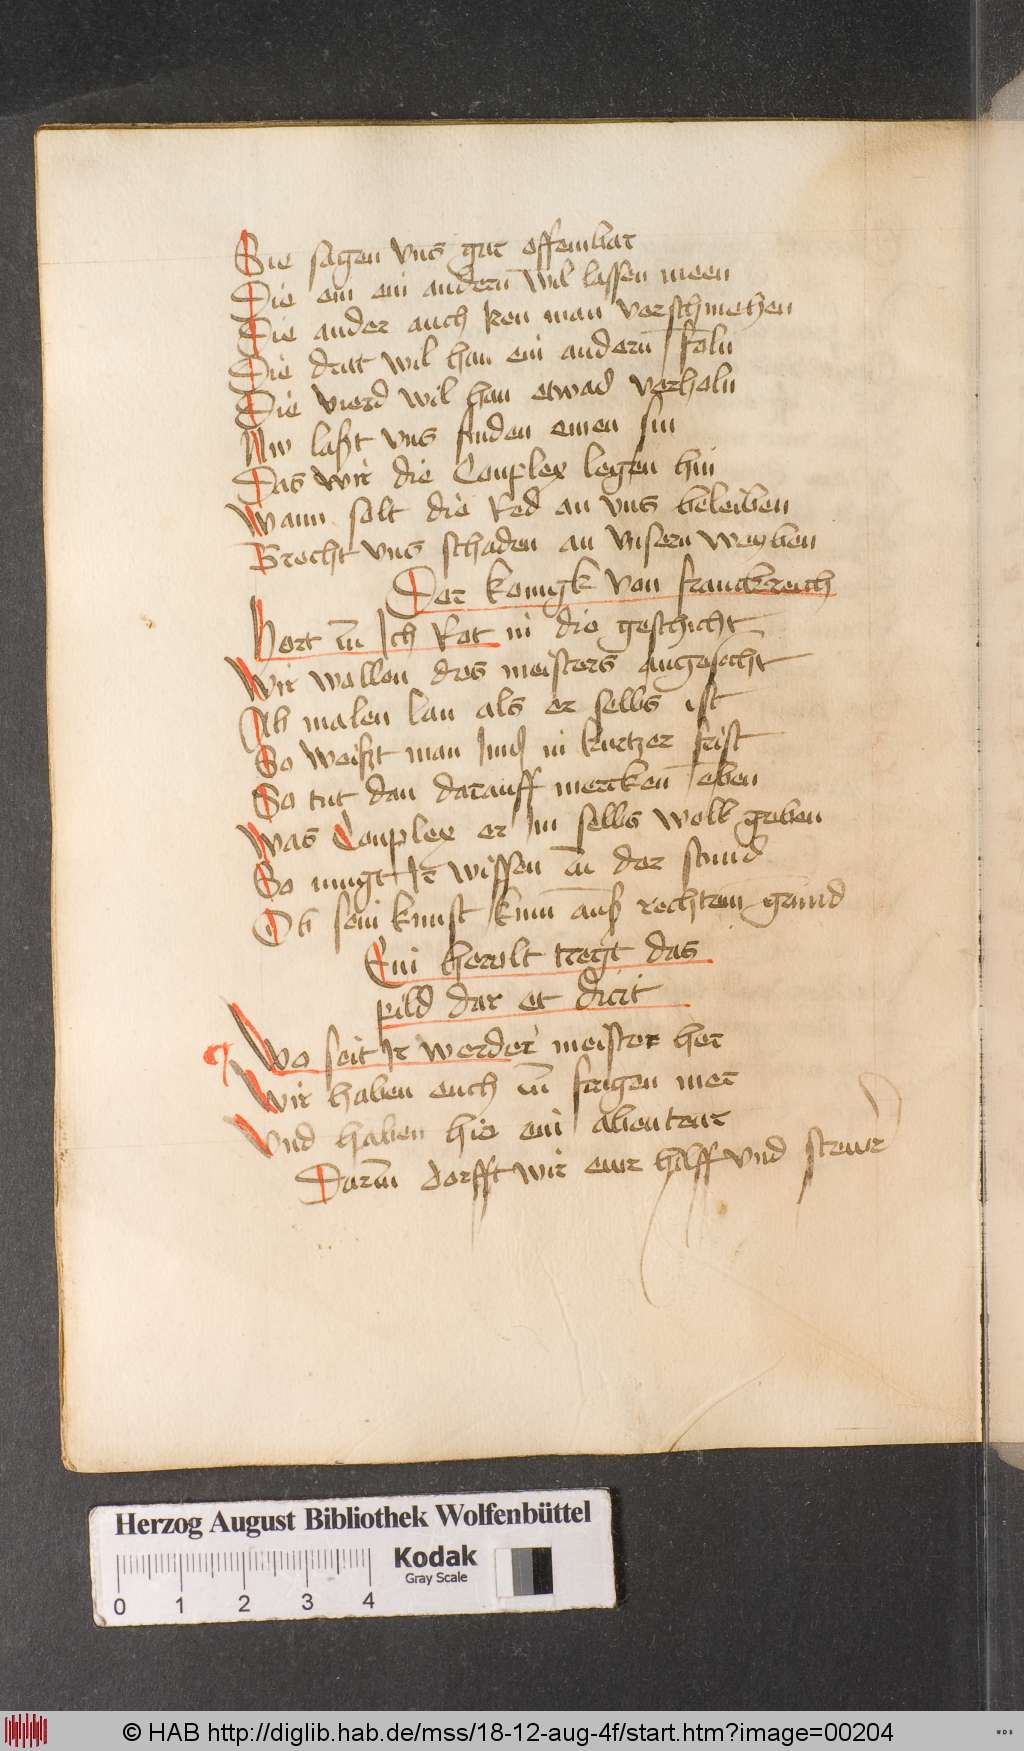 Sie sagen vns gar offembar
Die ein ein andern wil lassen meen
Die ander auch iren man verschmehen
Die drit wil han ein andern
Die vierd wil han etwad verholn
Nw laßt vns finden einen sin
Das wir die Conplex legen hin
Wann solt die Red an vns beleiben
Brecht vns schaden an vnsern weyben
Der konigk von franckreich
Hort Ich Rot in die geschicht
Wir wollen des meisters angesecht
Ab malen lan als er selbs ist
So weißt man Im in kurtzer frist
So tut dan darauff mercken eben
Was Conplex er Im selbs woll geben
So mugt Ir wissen an der stund
Ob sein kunst kum auß rechtem grund
Ein herolt tregt das
pild dar et dicit
Wo seit Ir werder meister her
Wir haben euch zu fragen mer
Vnd haben hie ein abenteur
Darum dorfft wir ewr hilff vnd stewr
Herzog August Bibliothek Wolfenbüttel
Kodak
Gray Scale
0 1 2 3 4
© HAB http://diglib.hab.de/mss/18-12-aug-4f/start.htm?image=00204
WDB